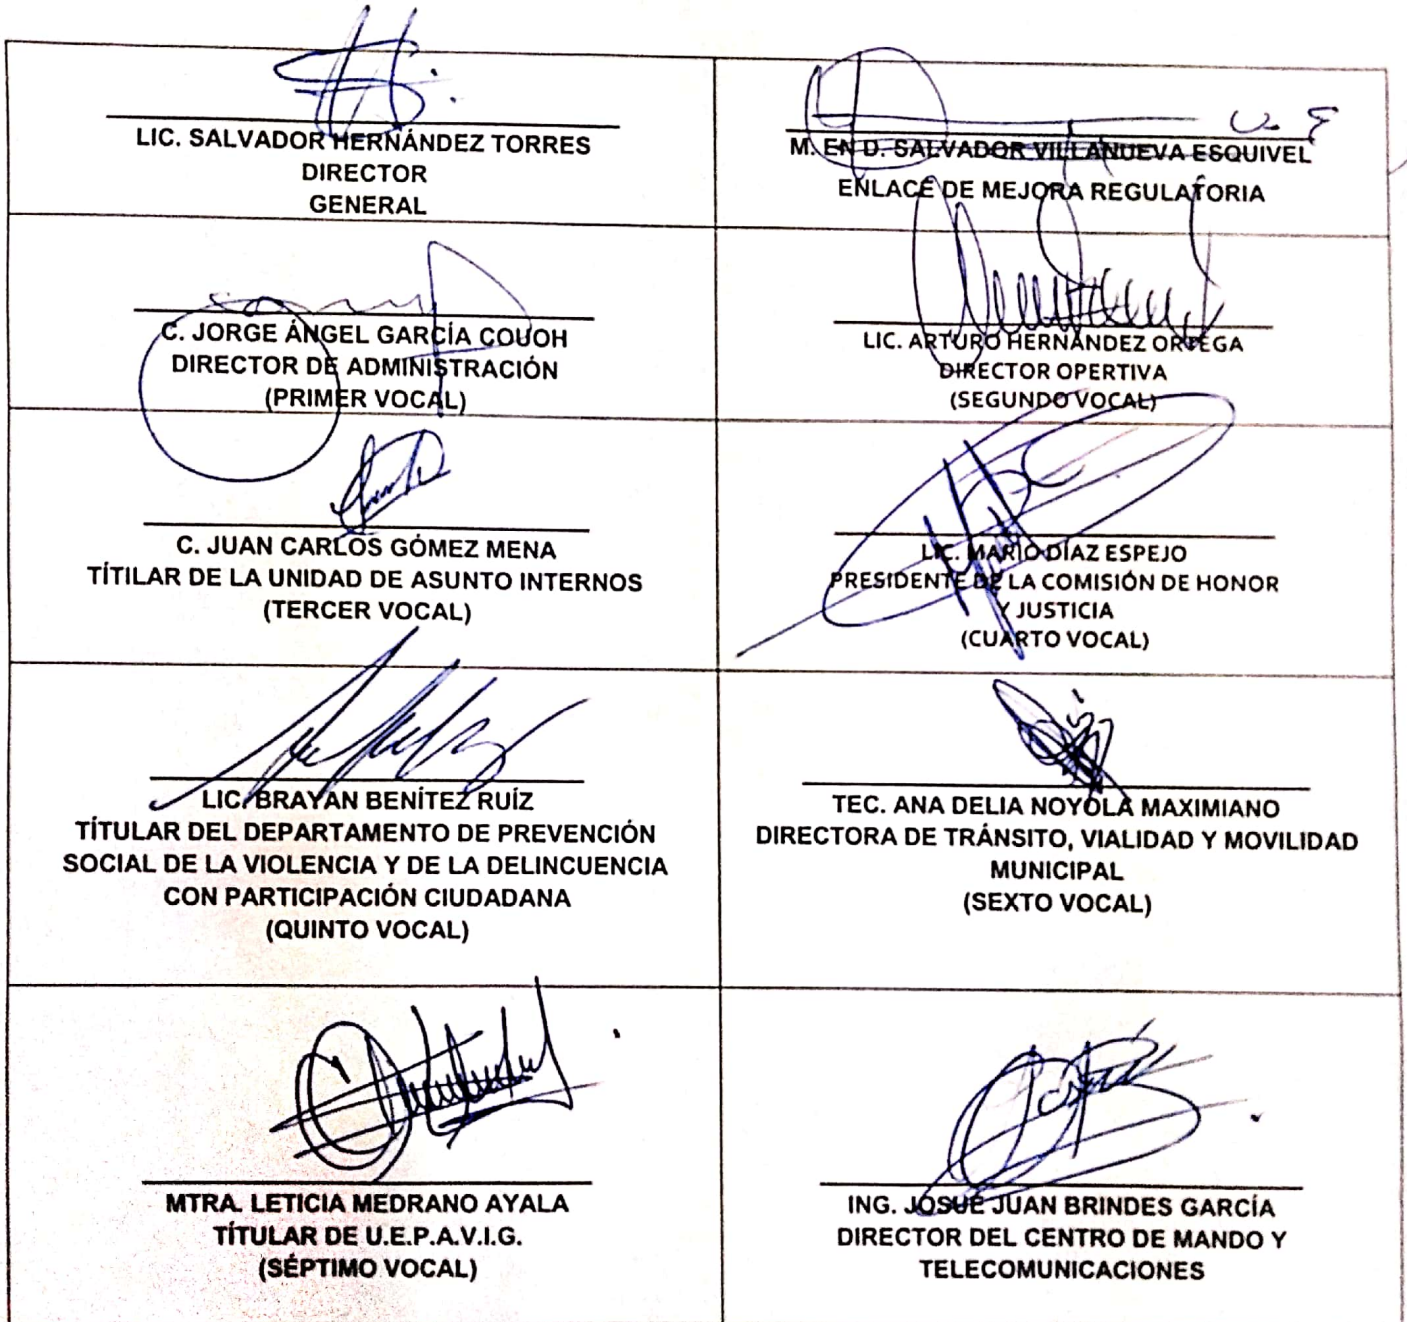 LIC. SALVADOR HERNÁNDEZ TORRES
DIRECTOR
GENERAL
M. EN D. SALVADOR VILLANUEVA ESQUIVEL
ENLACE DE MEJORA REGULATORIA
C. JORGE ÁNGEL GARCÍA COUOH
DIRECTOR DE ADMINISTRACIÓN
(PRIMER VOCAL)
LIC. ARTURO HERNÁNDEZ ORTEGA
DIRECTOR OPERTIVA
(SEGUNDO VOCAL)
C. JUAN CARLOS GÓMEZ MENA
TÍTILAR DE LA UNIDAD DE ASUNTO INTERNOS
(TERCER VOCAL)
LIC. MARIO DÍAZ ESPEJO
PRESIDENTE DE LA COMISIÓN DE HONOR
Y JUSTICIA
(CUARTO VOCAL)
LIC. BRAYAN BENÍTEZ RUÍZ
TÍTULAR DEL DEPARTAMENTO DE PREVENCIÓN
SOCIAL DE LA VIOLENCIA Y DE LA DELINCUENCIA
CON PARTICIPACIÓN CIUDADANA
(QUINTO VOCAL)
TEC. ANA DELIA NOYOLA MAXIMIANO
DIRECTORA DE TRÁNSITO, VIALIDAD Y MOVILIDAD
MUNICIPAL
(SEXTO VOCAL)
MTRA. LETICIA MEDRANO AYALA
TÍTULAR DE U.E.P.A.V.I.G.
(SÉPTIMO VOCAL)
ING. JOSUE JUAN BRINDES GARCÍA
DIRECTOR DEL CENTRO DE MANDO Y
TELECOMUNICACIONES